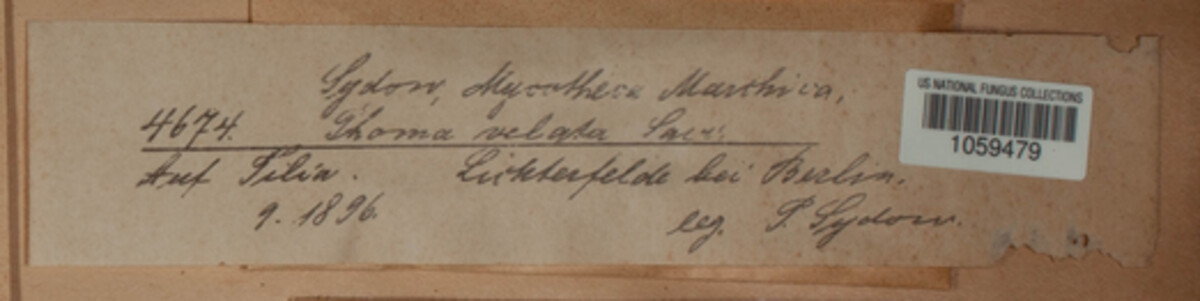 Sydow, Mycotheca Marchica.
4674. Phoma velata Sacc.
Auf Tilia. Lichterfelde bei Berlin.
9. 1896. leg. P. Sydow.
US NATIONAL FUNGUS COLLECTIONS
1059479